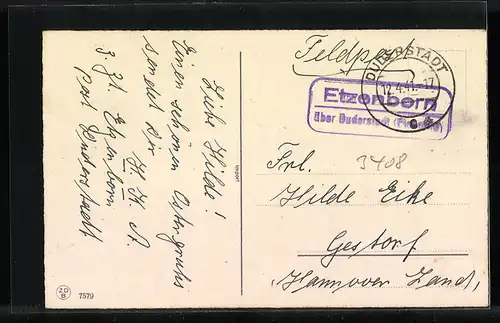 Liebe Hilde!
Einen schönen Ostergruß
sendet Dir
H. H. A
z. Zt. Etzenborn
Post Duderstadt
ZD
B
7579
Import
Feldpost
DUDERSTADT
12.4.41.-17
Etzenborn
über Duderstadt
3408
Frl.
Hilde Eike
Gestorf
Hannover Land,